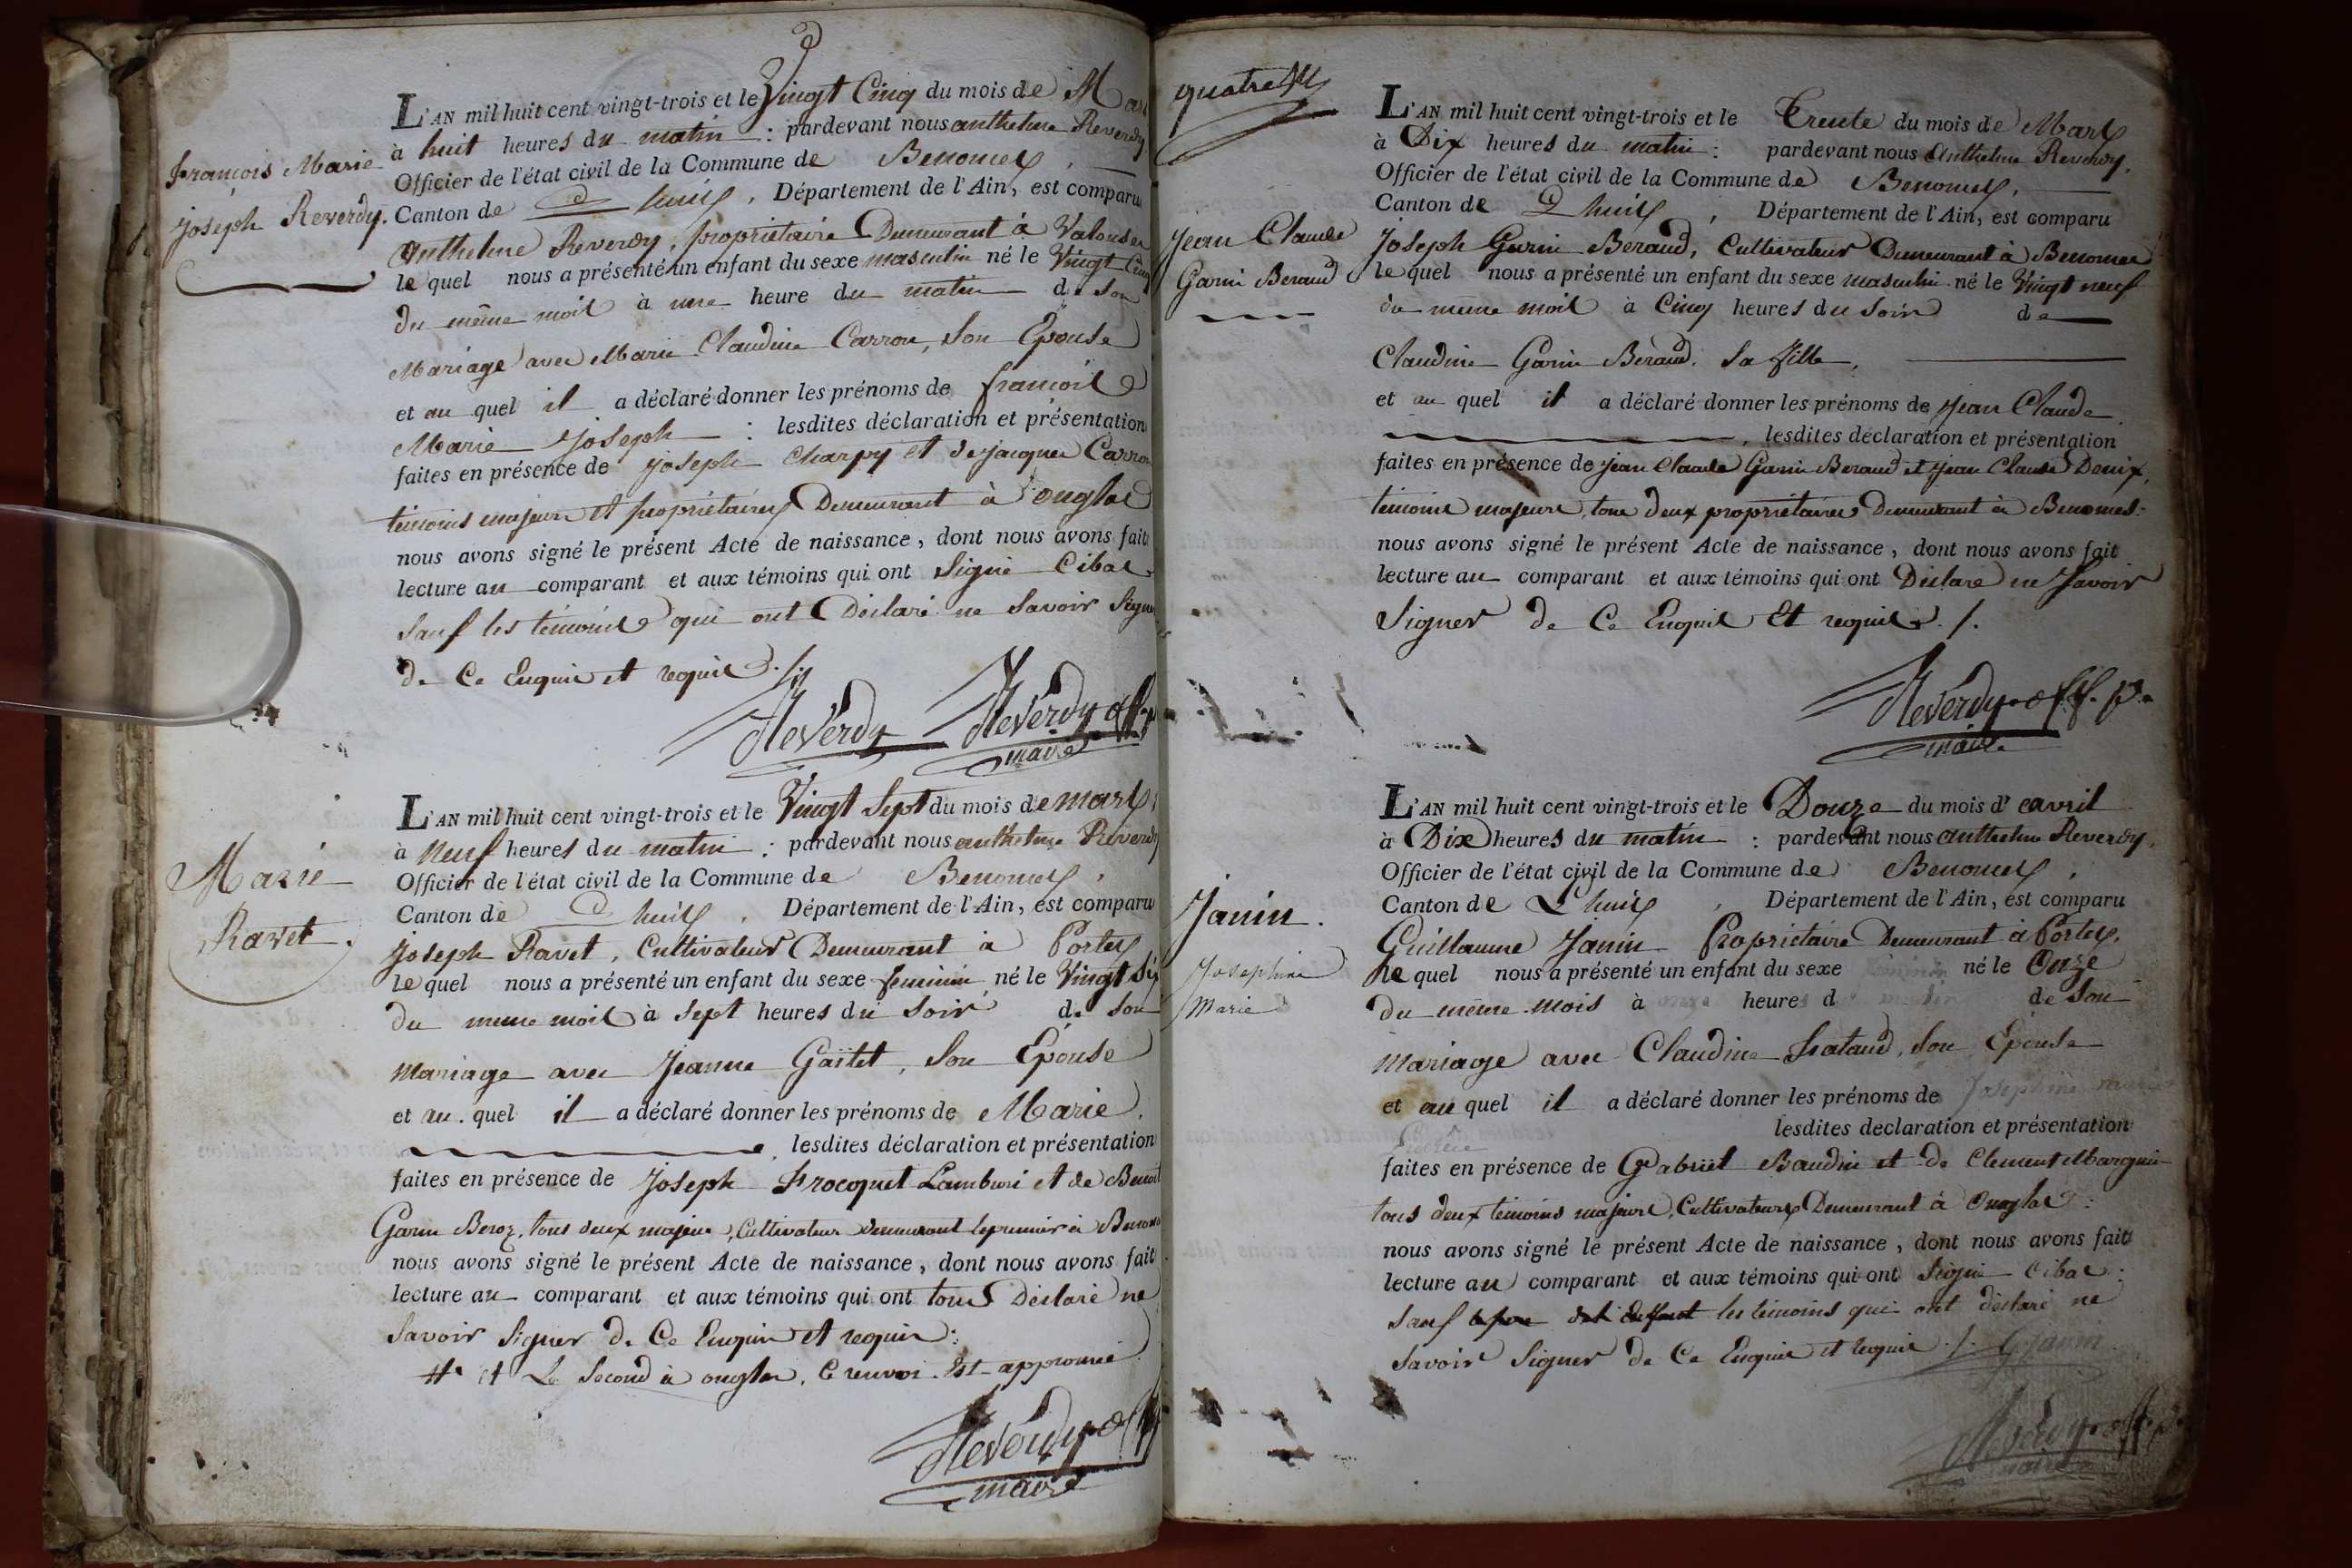 L'AN mil huit cent vingt-trois et le Vingt Cinq du mois de Mars
à huit heures du matin : pardevant nous anthelme Reverdy
Officier de l'état civil de la Commune de Benonces,
Canton de Lhuis, Département de l'Ain, est comparu
François Marie
Joseph Reverdy.
Anthelme Reverdy, propriétaire Demeurant à
le quel nous a présenté un enfant du sexe masculin né le Vingt Cinq
du même mois à une heure du matin de son
Mariage avec Marie Claudine Carron, son Epouse
et au quel il a déclaré donner les prénoms de françois
Marie Joseph : lesdites déclaration et présentation
faites en présence de joseph Charpy et de jacques Carron
témoins majeurs et propriétaires Demeurant à onglas
nous avons signé le présent Acte de naissance, dont nous avons fait
lecture au comparant et aux témoins qui ont Signé Cibas
sauf les témoins qui ont Déclaré ne Savoir Signer
de Ce Enquis et requis ./.
Reverdy Reverdy off
maire
L'AN mil huit cent vingt-trois et le Vingt Sept du mois de mars
à Neuf heures du matin : pardevant nous anthelme Reverdy
Officier de l'état civil de la Commune de Benonces,
Canton de Lhuis, Département de l'Ain, est comparu
Marie
Ravet.
Joseph Ravet, Cultivateur Demeurant à Portes
le quel nous a présenté un enfant du sexe feminin né le Vingt Six
du meme mois à Sept heures du Soir de Son
Mariage avec Jeanne Gaitet, Son Epouse
et au quel il a déclaré donner les prénoms de Marie.
lesdites déclaration et présentation
faites en présence de Joseph Trocquet Lamburi et de Benoit
Garin Beroz, tous deux majeurs, Cultivateurs Demeurant le premier à
nous avons signé le présent Acte de naissance, dont nous avons fait
lecture au comparant et aux témoins qui ont tous Déclaré ne
Savoir Signer de Ce Enquis et requis.
# et Le Second à onglas, Ce renvoi Est approuvé
Reverdy off
maire
quatre
L'AN mil huit cent vingt-trois et le Trente du mois de Mars
à Dix heures du matin : pardevant nous Anthelme Reverdy,
Officier de l'état civil de la Commune de Benonces,
Canton de Lhuis, Département de l'Ain, est comparu
Jean Claude
Garin Beraud
Joseph Garin Beraud, Cultivateur Demeurant à Benonces
le quel nous a présenté un enfant du sexe masculin né le Vingt neuf
du même mois à Cinq heures du Soir de
Claudine Garin Béraud. Sa fille,
et au quel il a déclaré donner les prénoms de Jean Claude
, lesdites déclaration et présentation
faites en présence de Jean Claude Garin Beraud et Jean Claude Denix,
témoins majeurs, tous deux propriétaires Demeurant à Benonces.
nous avons signé le présent Acte de naissance, dont nous avons fait
lecture au comparant et aux témoins qui ont Déclaré ne Savoir
Signer de Ce Enquis Et requis ./.
Reverdy off. p.
maire
L'AN mil huit cent vingt-trois et le Douze du mois d' avril
à Dix heures du matin : pardevant nous anthelme Reverdy,
Officier de l'état civil de la Commune de Benonces,
Canton de Lhuis, Département de l'Ain, est comparu
Janin.
Josephine
Marie
Guillaume Janin Propriétaire Demeurant à Portes,
le quel nous a présenté un enfant du sexe féminin né le Onze
du même mois à onze heures du matin de Son
Mariage avec Claudine Frataud, Son Epouse
et au quel il a déclaré donner les prénoms de Josephine marie
lesdites déclaration et présentation
faites en présence de Gabriel Baudin et de Clement Marguin
tous deux témoins majeurs, Cultivateurs Demeurant à Onglas :
nous avons signé le présent Acte de naissance, dont nous avons fait
lecture au comparant et aux témoins qui ont Signé Cibas :
sauf les témoins qui ont déclaré ne
Savoir Signer de Ce Enquis et requis ./. GJanin
Reverdy off. p.
maire